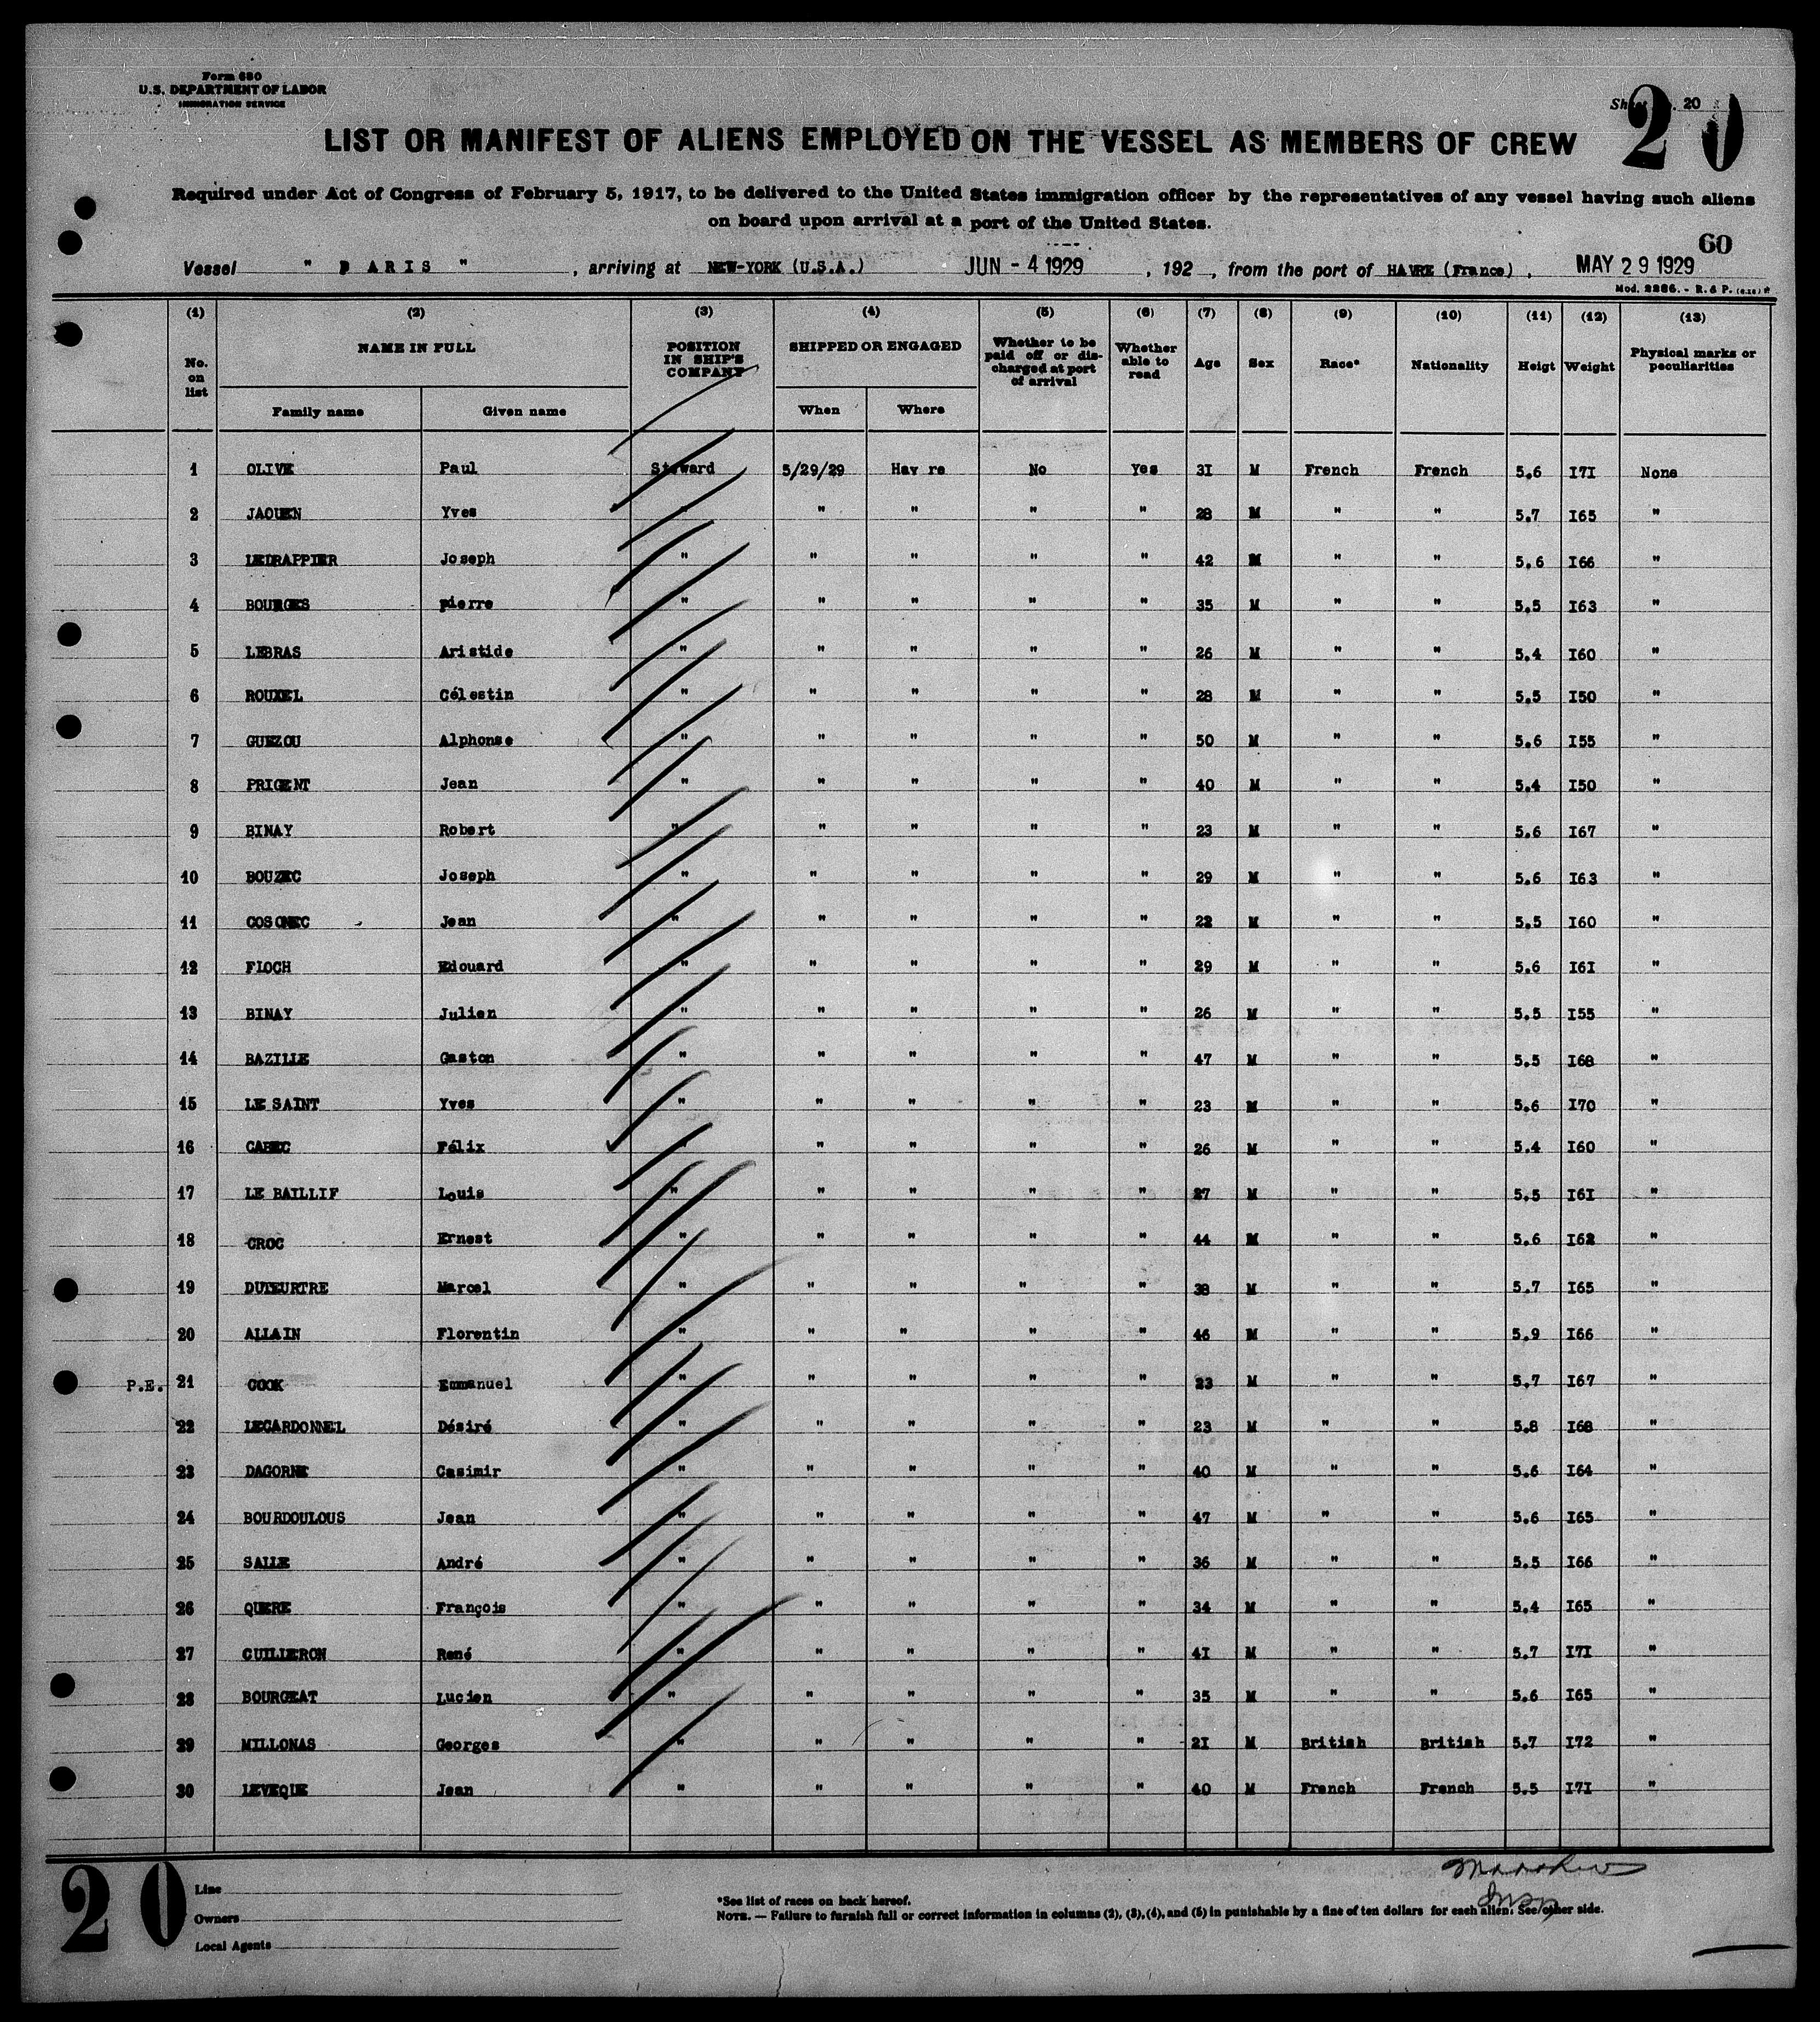 Form 680
U.S. DEPARTMENT OF LABOR
IMMIGRATION SERVICE
20
20
LIST OR MANIFEST OF ALIENS EMPLOYED ON THE VESSEL AS MEMBERS OF CREW
Required under Act of Congress of February 5, 1917, to be delivered to the United States immigration officer by the representatives of any vessel having such aliens
on board upon arrival at a port of the United States.
60
Vessel " PARIS ", arriving at NEW-YORK (U.S.A.) JUN - 4 1929, 192 , from the port of HAVRE (France), MAY 29 1929
Mod. 2286. - R. & P.
(1) (2) (3) (4) (5) (6) (7) (8) (9) (10) (11) (12) (13)
No. on list NAME IN FULL POSITION IN SHIP'S COMPANY SHIPPED OR ENGAGED Whether to be paid off or discharged at port of arrival Whether able to read Age Sex Race* Nationality Heigt Weight Physical marks or peculiarities
Family name Given name When Where
1 OLIVE Paul Steward 5/29/29 Hav re No Yes 3I M French French 5,6 I7I None
2 JAOUEN Yves " " " " " 28 M " " 5,7 I65 "
3 LEDRAPPIER Joseph " " " " " 42 M " " 5,6 I66 "
4 BOURGES pierre " " " " " 35 M " " 5,5 I63 "
5 LEBRAS Aristide " " " " " 26 M " " 5,4 I60 "
6 ROUXEL Célestin " " " " " 28 M " " 5,5 I50 "
7 GUEZOU Alphonse " " " " " 50 M " " 5,6 I55 "
8 PRIGENT Jean " " " " " 40 M " " 5,4 I50 "
9 BINAY Robert " " " " " 23 M " " 5,6 I67 "
10 BOUZEC Joseph " " " " " 29 M " " 5,6 I63 "
11 COSQNEC Jean " " " " " 22 M " " 5,5 I60 "
12 FLOCH Edouard " " " " " 29 M " " 5,6 I6I "
13 BINAY Julien " " " " " 26 M " " 5,5 I55 "
14 BAZILLE Gaston " " " " " 47 M " " 5,5 I68 "
15 LE SAINT Yves " " " " " 23 M " " 5,6 I70 "
16 CABEC Félix " " " " " 26 M " " 5,4 I60 "
17 LE BAILLIF Louis " " " " " 27 M " " 5,5 I6I "
18 CROC Ernest " " " " " 44 M " " 5,6 I62 "
19 DUTEURTRE Marcel " " " " " 38 M " " 5,7 I65 "
20 ALLAIN Florentin " " " " " 46 M " " 5,9 I66 "
P.E. 21 COOK Emmanuel " " " " " 23 M " " 5,7 I67 "
22 LECARDONNEL Désiré " " " " " 23 M " " 5,8 I68 "
23 DAGORNE Casimir " " " " " 40 M " " 5,6 I64 "
24 BOURDOULOUS Jean " " " " " 47 M " " 5,6 I65 "
25 SALLE André " " " " " 36 M " " 5,5 I66 "
26 QUERE François " " " " " 34 M " " 5,4 I65 "
27 GUILLERON René " " " " " 4I M " " 5,7 I7I "
28 BOURGEAT Lucien " " " " " 35 M " " 5,6 I65 "
29 MILLONAS Georges " " " " " 2I M British British 5,7 I72 "
30 LEVEQUE Jean " " " " " 40 M French French 5,5 I7I "
20
Line
Owners
Local Agents
*See list of races on back hereof.
NOTE. — Failure to furnish full or correct information in columns (2), (3), (4), and (5) in punishable by a fine of ten dollars for each alien. See other side.
Insp